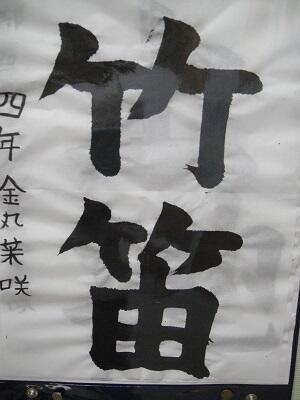 竹笛
四年 金丸菜咲